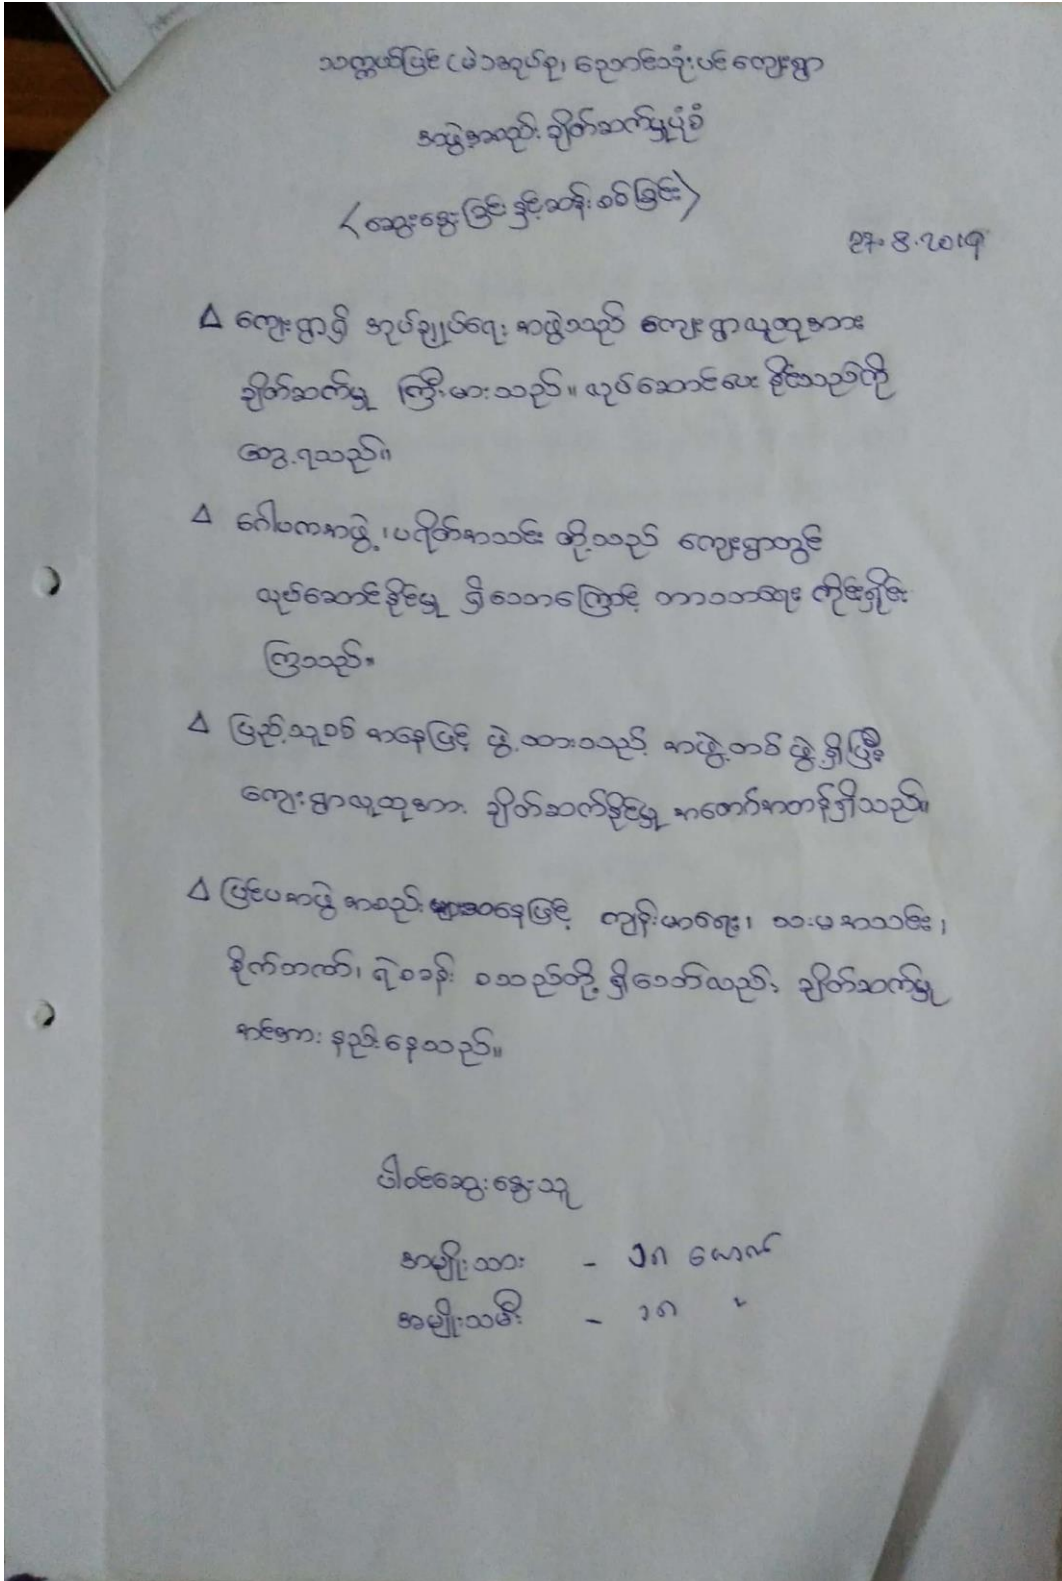 သက္ကယ်ပြင် (မဲ) အုပ်စု၊ ညောင်သုံးပင် ကျေးရွာ
အဖွဲ့အစည်း ချိတ်ဆက်မှုပုံစံ
〈ဆွေးနွေးခြင်းနှင့်ဆန်းစစ်ခြင်း〉
27.8.2019
Δ ကျေးရွာရှိ အုပ်ချုပ်ရေး အဖွဲ့သည် ကျေးရွာလူထုအား
ချိတ်ဆက်မှု ကြီးမားသည်။ လုပ်ဆောင်ပေး နိုင်သည်ကို
တွေ့ရသည်။
Δ ဂေါပကအဖွဲ့၊ ပရိတ်အသင်း တို့သည် ကျေးရွာတွင်
လုပ်ဆောင်နိုင်မှု ရှိသောကြောင့် ဘာသာရေး ကိုင်းရှိုင်း
ကြသည်။
Δ ပြည်သူ့စစ် အနေဖြင့် ဖွဲ့ထားသည့် အဖွဲ့တစ်ဖွဲ့ရှိပြီး
ကျေးရွာလူထုအား ချိတ်ဆက်နိုင်မှု အတော်အတန်ရှိသည်။
Δ ပြင်ပအဖွဲ့အစည်းများအနေဖြင့် ကျန်းမာရေး၊ သားမအသင်း၊
စိုက်ဘဏ်၊ ရဲစခန်း စသည်တို့ ရှိသော်လည်း ချိတ်ဆက်မှု
အင်အား နည်းနေသည်။
ပါဝင်ဆွေးနွေးသူ
အမျိုးသား - ၁၈ ယောက်
အမျိုးသမီး - ၁၈ "